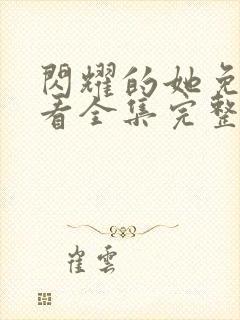 閃耀的她免
看全集完整
崔雲